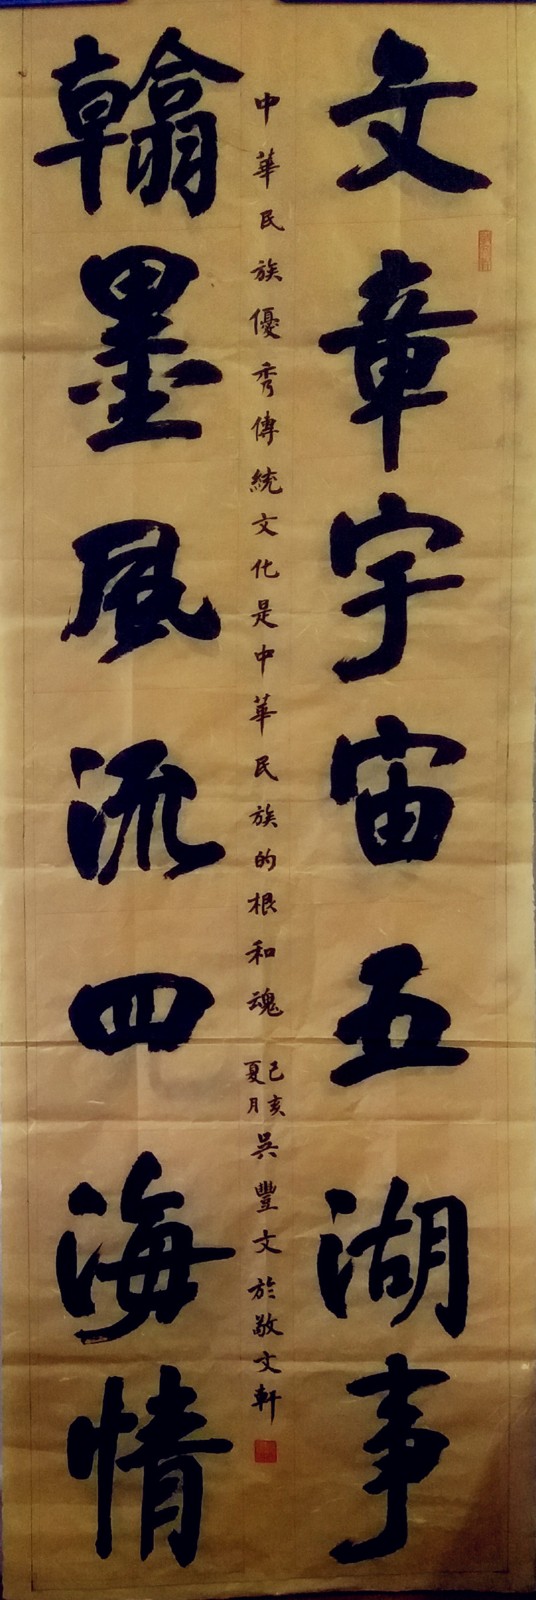 文章宇宙五湖事
中華民族優秀傳統文化是中華民族的根和魂
己亥
夏月
吳豐文於敬文軒
翰墨風流四海情